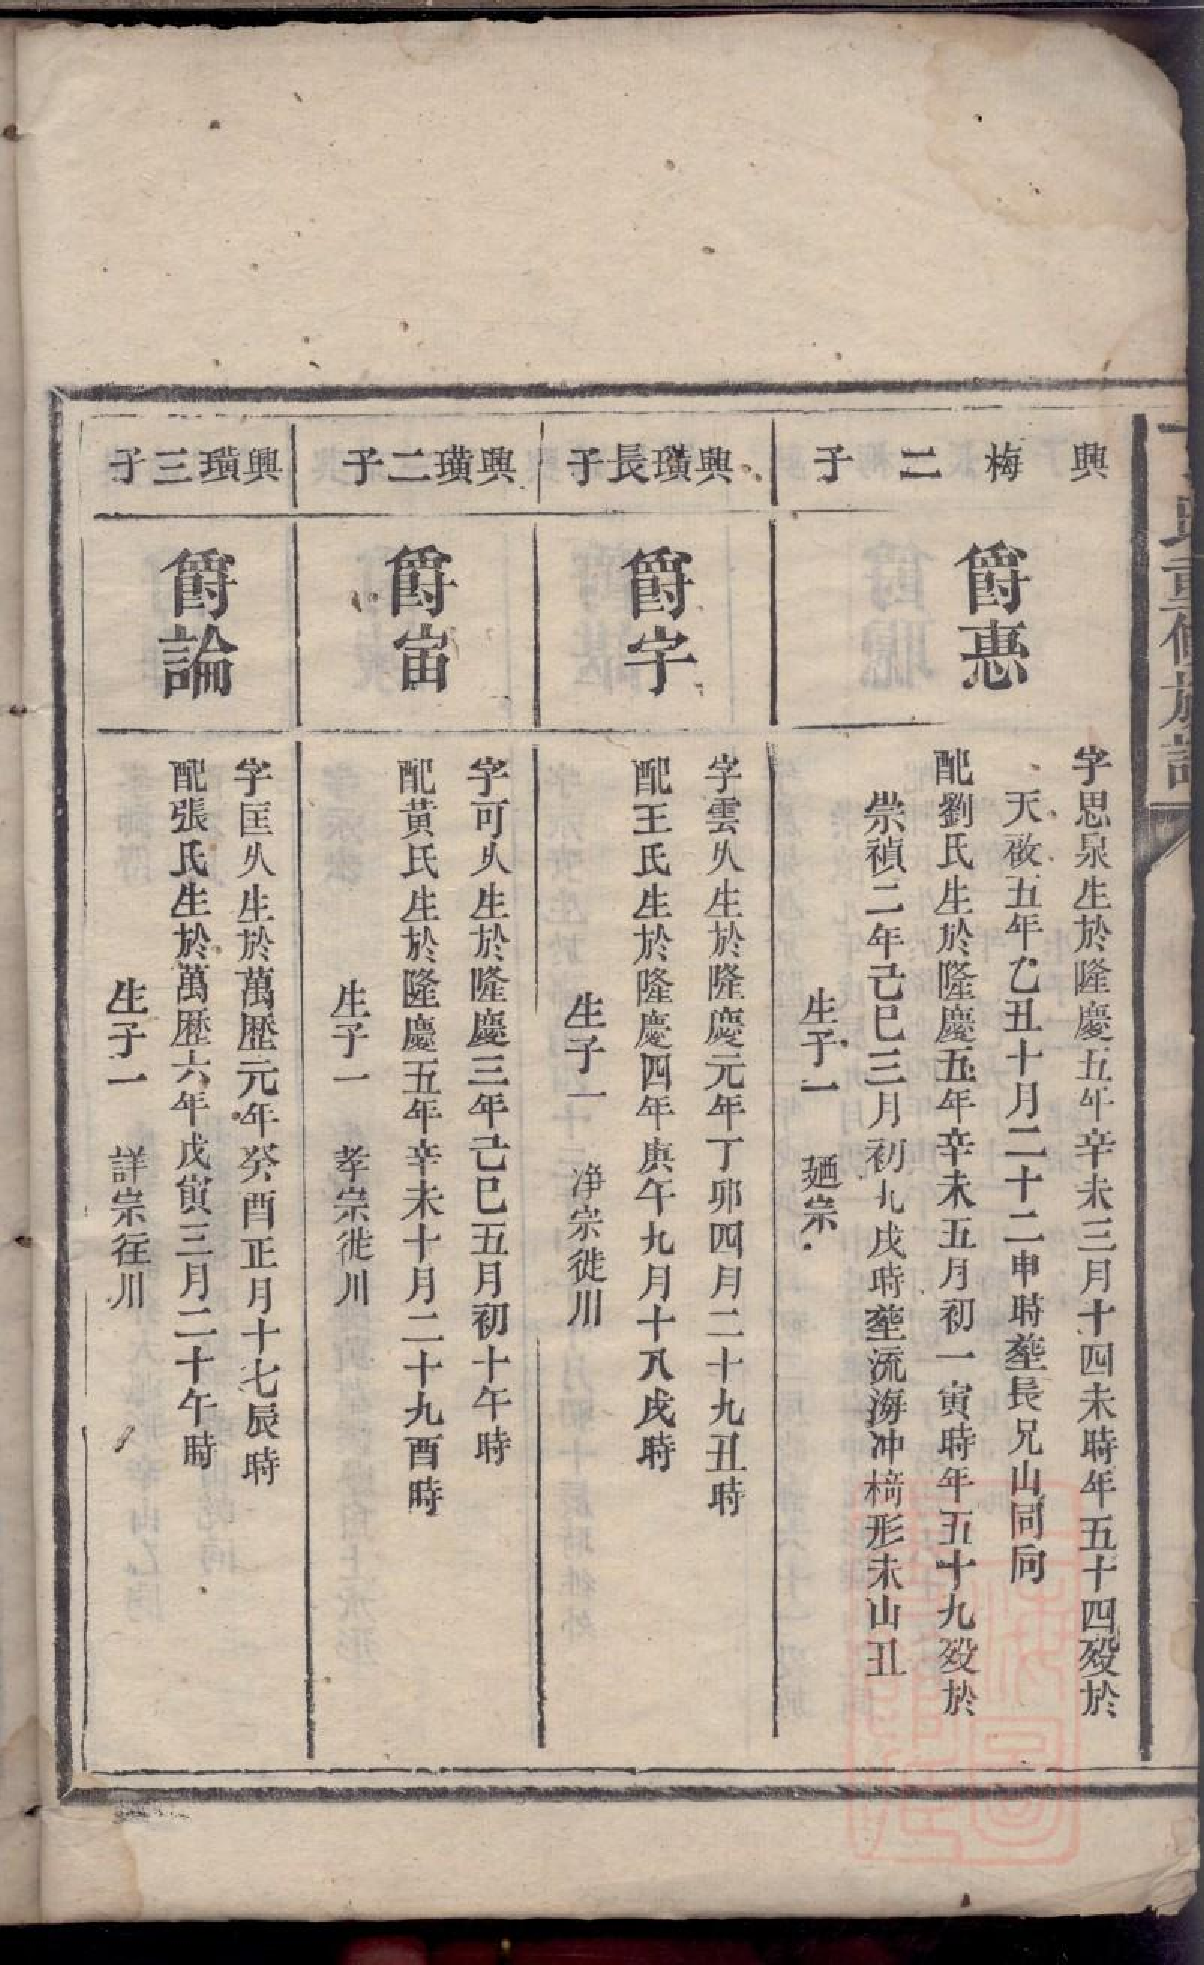 重修族譜
興梅二子
爵惪
字思泉生於隆慶五年辛未三月十四未時年五十四殁於
天啟五年乙丑十月二十二申時塟長兄山同向
配劉氏生於隆慶五年辛未五月初一寅時年五十九殁於
崇禎二年己巳三月初九戌時塟流海冲椅形未山丑
生子一 廼宗
興璜長子
爵宇
字雲从生於隆慶元年丁卯四月二十九丑時
配王氏生於隆慶四年庚午九月十八戌時
生子一 净宗徙川
興璜二子
爵宙
字可从生於隆慶三年己巳五月初十午時
配黄氏生於隆慶五年辛未十月二十九酉時
生子一 孝宗徙川
興璜三子
爵論
字匡从生於萬歴元年癸酉正月十七辰時
配張氏生於萬歴六年戊寅三月二十午時
生子一 詳宗往川